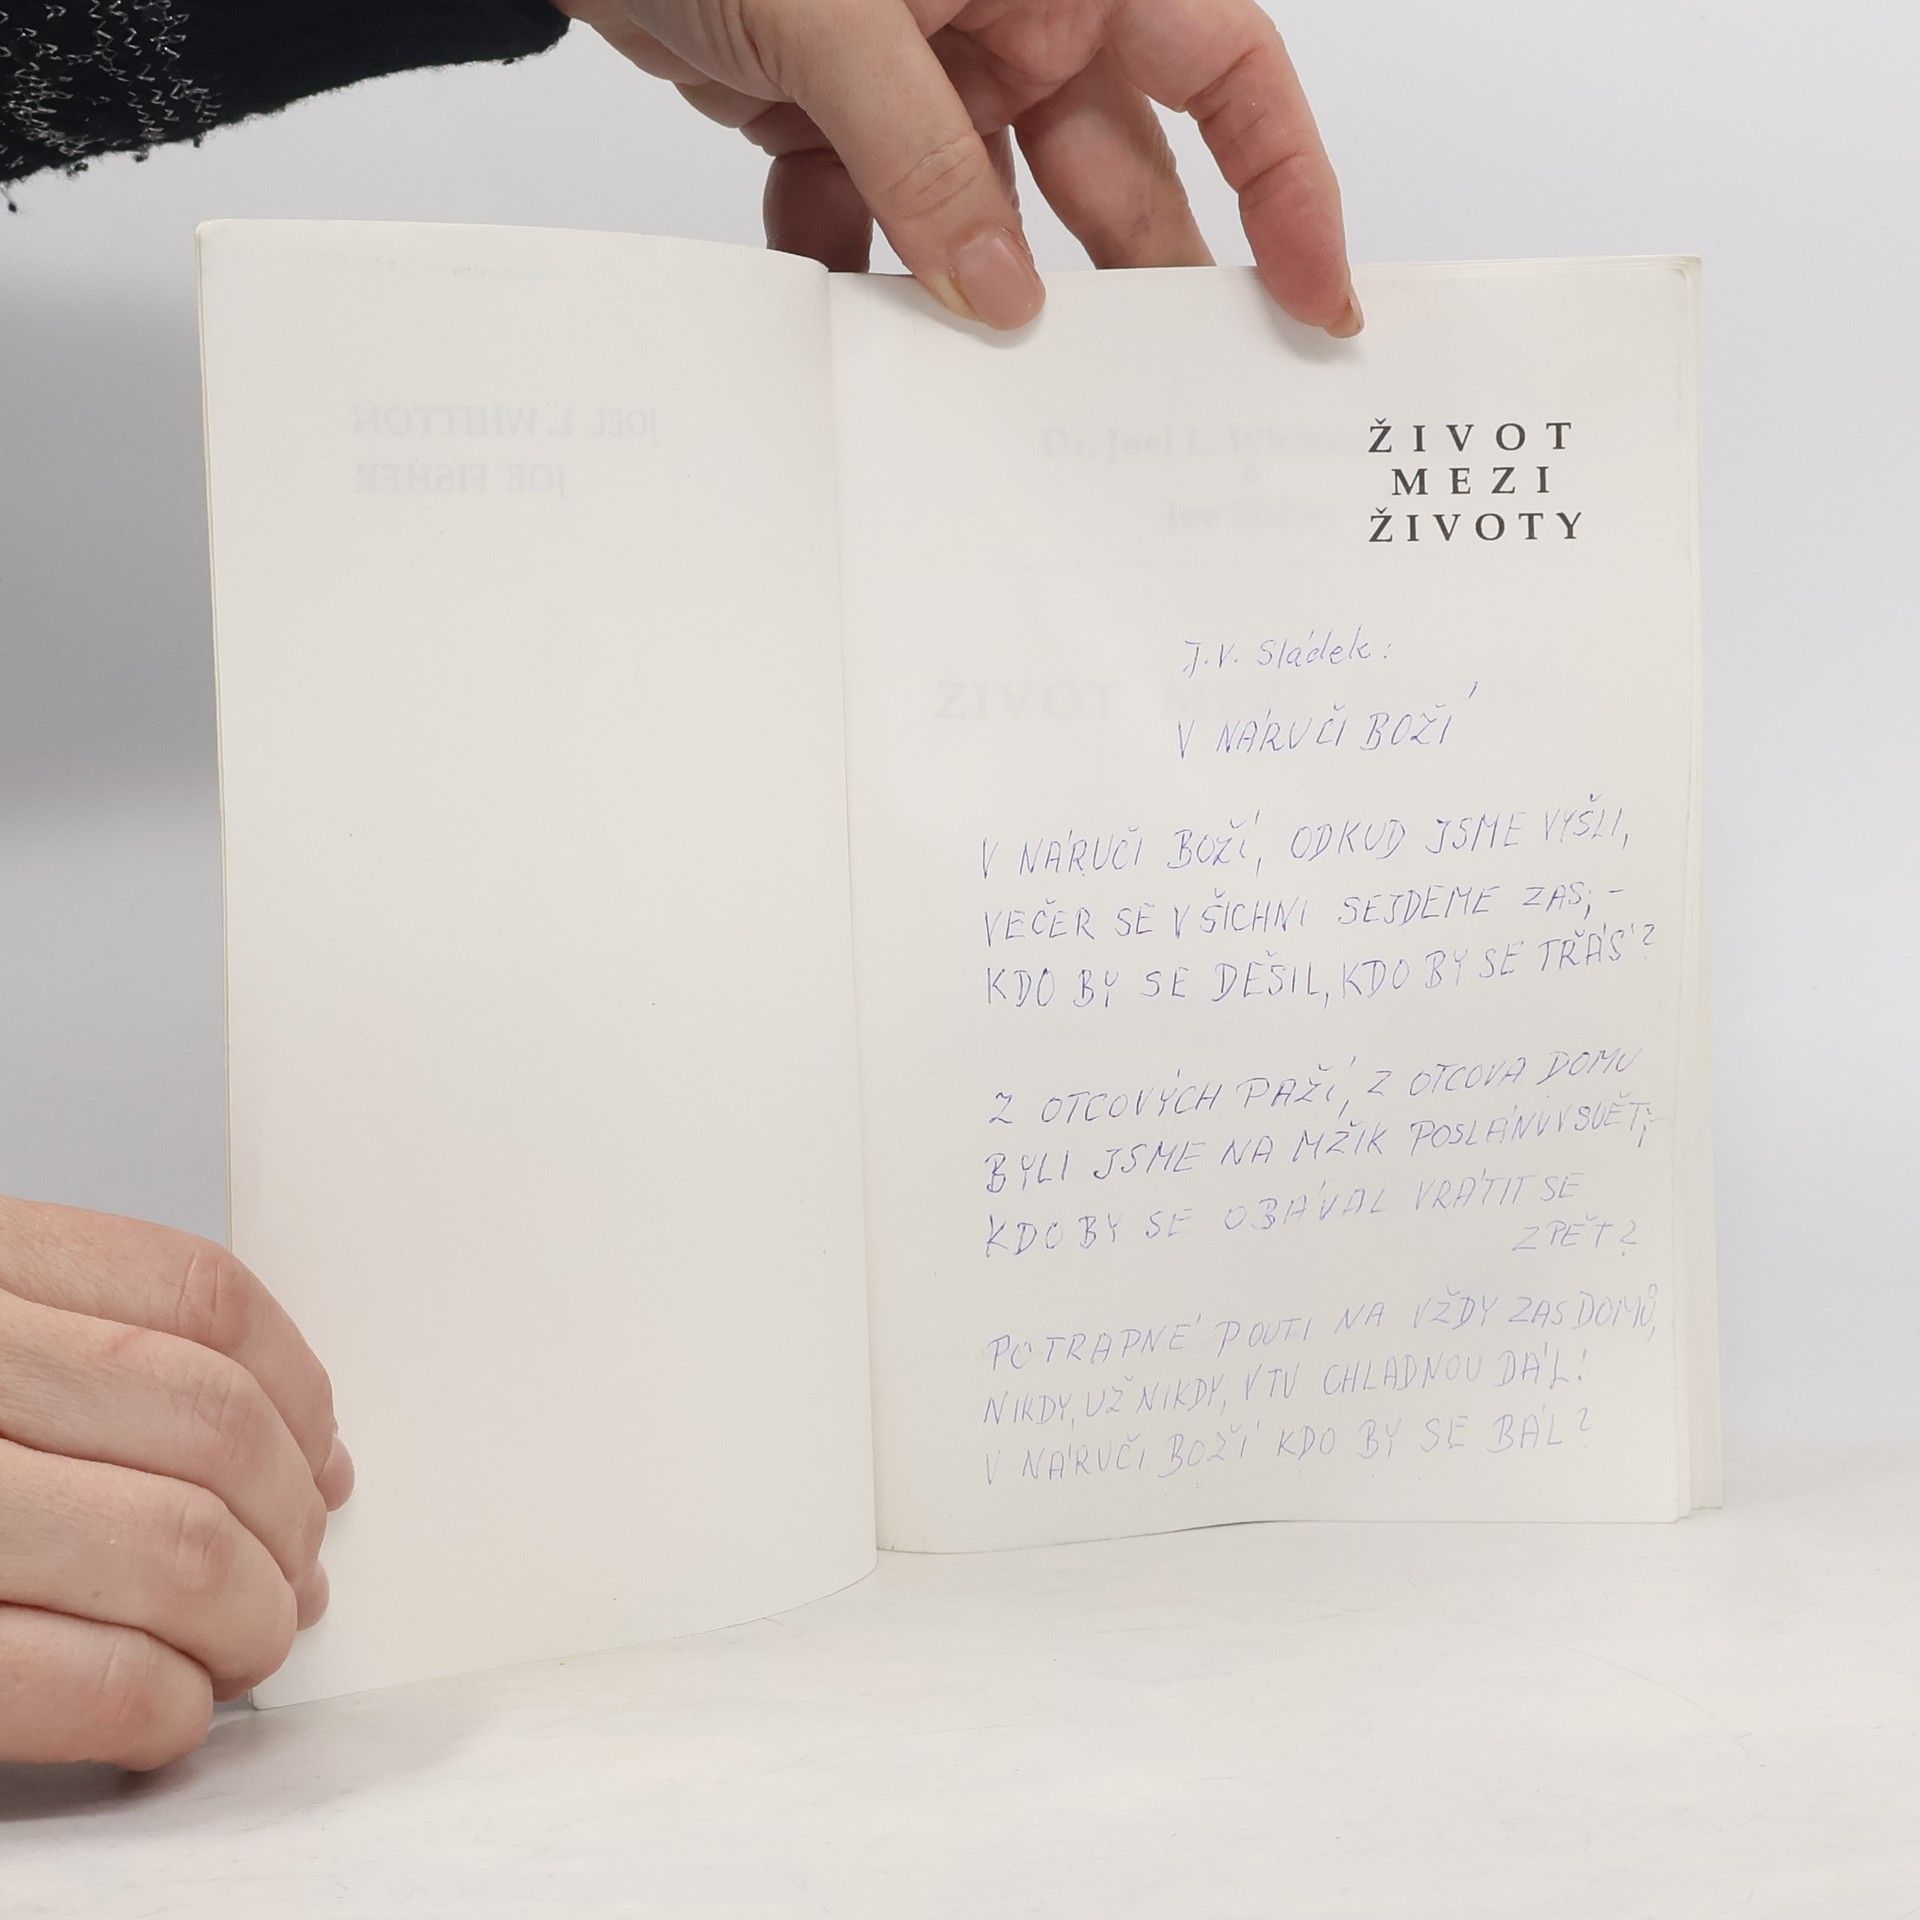 JOEL L. WHITTON
JOE FISHER
Dr. Joel L. Whitton
&
Joe Fisher
ŽIVOT
MEZI
ŽIVOTY
J. V. Sládek:
ŽIVOT
V NÁRUČI BOŽÍ
V NÁRUČI BOŽÍ, ODKUD JSME VYŠLI,
VEČER SE VŠICHNI SEJDEME ZAS; –
KDO BY SE DĚSIL, KDO BY SE TŘÁS'?
Z OTCOVÝCH PAŽÍ, Z OTCOVA DOMU
BYLI JSME NA MŽIK POSLÁNI V SVĚT; –
KDO BY SE OBÁVAL VRÁTIT SE
ZPĚT?
PO TRAPNÉ POUTI NA VŽDY ZAS DOMŮ,
NIKDY, UŽ NIKDY, V TU CHLADNOU DÁL!
V NÁRUČI BOŽÍ KDO BY SE BÁL?